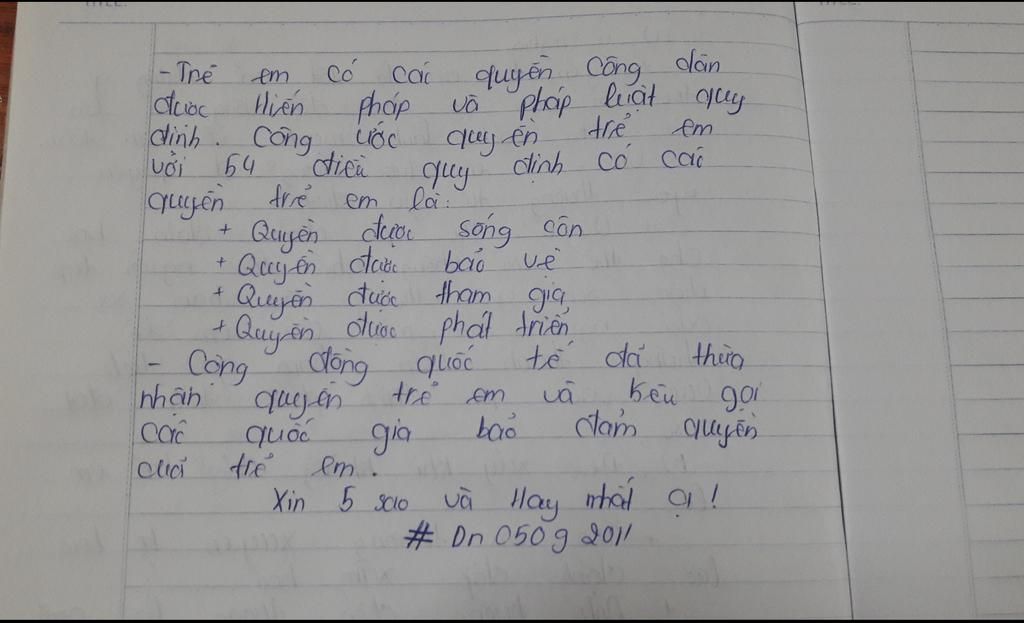 - Trẻ em có các quyền công dân
được Hiến pháp và pháp luật quy
định. Công ước quyền trẻ em
với 54 điều quy định có các
quyền trẻ em là:
+ Quyền được sống còn
+ Quyền được bảo vệ
+ Quyền được tham gia
+ Quyền được phát triển
- Cộng đồng quốc tế đã thừa
nhận quyền trẻ em và kêu gọi
các quốc gia bảo đảm quyền
của trẻ em.
Xin 5 sao và Hay nhất ạ!
# Dn 050g 2011